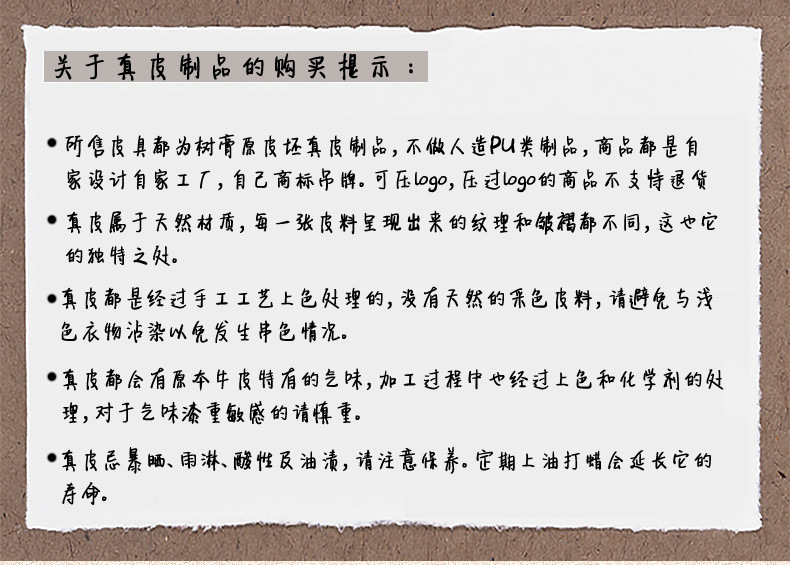 关于真皮制品的购买提示：
●所售皮具都为树膏原皮坯真皮制品，不做人造PU类制品，商品都是自
家设计自家工厂，自己商标吊牌。可压logo，压过logo的商品不支持退货
●真皮属于天然材质，每一张皮料呈现出来的纹理和皱褶都不同，这也它
的独特之处。
●真皮都是经过手工工艺上色处理的，没有天然的采色皮料，请避免与浅
色衣物沾染以免发生串色情况。
●真皮都会有原本牛皮特有的气味，加工过程中也经过上色和化学剂的处
理，对于气味漆重敏感的请慎重。
●真皮忌暴晒、雨淋、酸性及油渍，请注意保养。定期上油打蜡会延长它的
寿命。